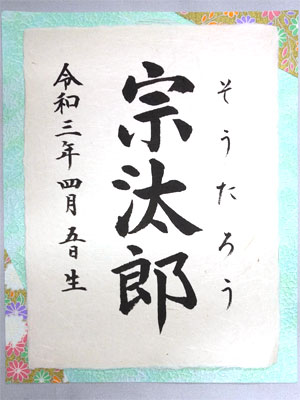 そうたろう
宗汰郎
令和三年四月五日生